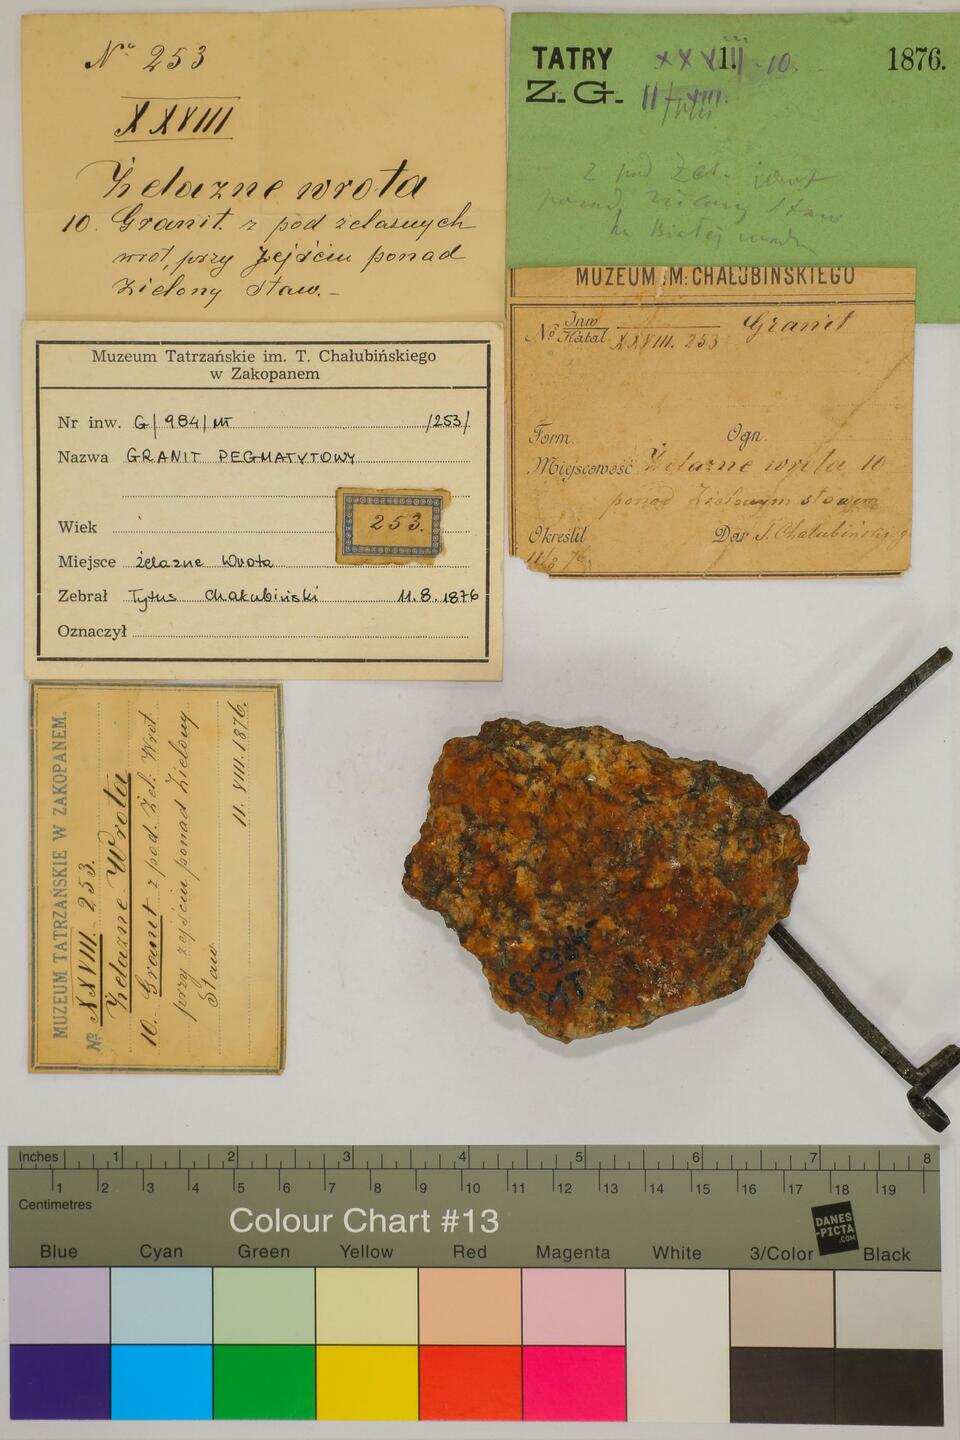 Nº 253
XXVIII
Żelazne wrota
10. Granit z pod żelaznych
wrot, przy zejściu ponad
Zielony Staw.-
TATRY XXVIII. 10. 1876.
Z. G. II
z pod Żel. wrot
ponad Zielony Staw
MUZEUM IM. CHAŁUBIŃSKIEGO
Nº Inw
Katal XXVIII. 253 Granit
Form. Ogn.
Miejscowość Żelazne wrota 10
ponad Zielonym stawem
Określił Dar T. Chałubińskieg
11/8 76.
Muzeum Tatrzańskie im. T. Chałubińskiego
w Zakopanem
Nr inw. G/984/MT /253/
Nazwa GRANIT PEGMATYTOWY
253.
Wiek
Miejsce żelazne Wrota
Zebrał Tytus Chałubiński 11.8.1876
Oznaczył
MUZEUM TATRZAŃSKIE W ZAKOPANEM.
Nº XXVIII. 253.
Żelazne Wrota
10. Granit z pod. Żel. Wrot
przy zejściu ponad Zielony
Staw
11. VIII. 1876.
G-984
MT
Inches 1 2 3 4 5 6 7 8
1 2 3 4 5 6 7 8 9 10 11 12 13 14 15 16 17 18 19
Centimetres
Colour Chart #13
DANES
-PICTA
.COM
Blue Cyan Green Yellow Red Magenta White 3/Color Black